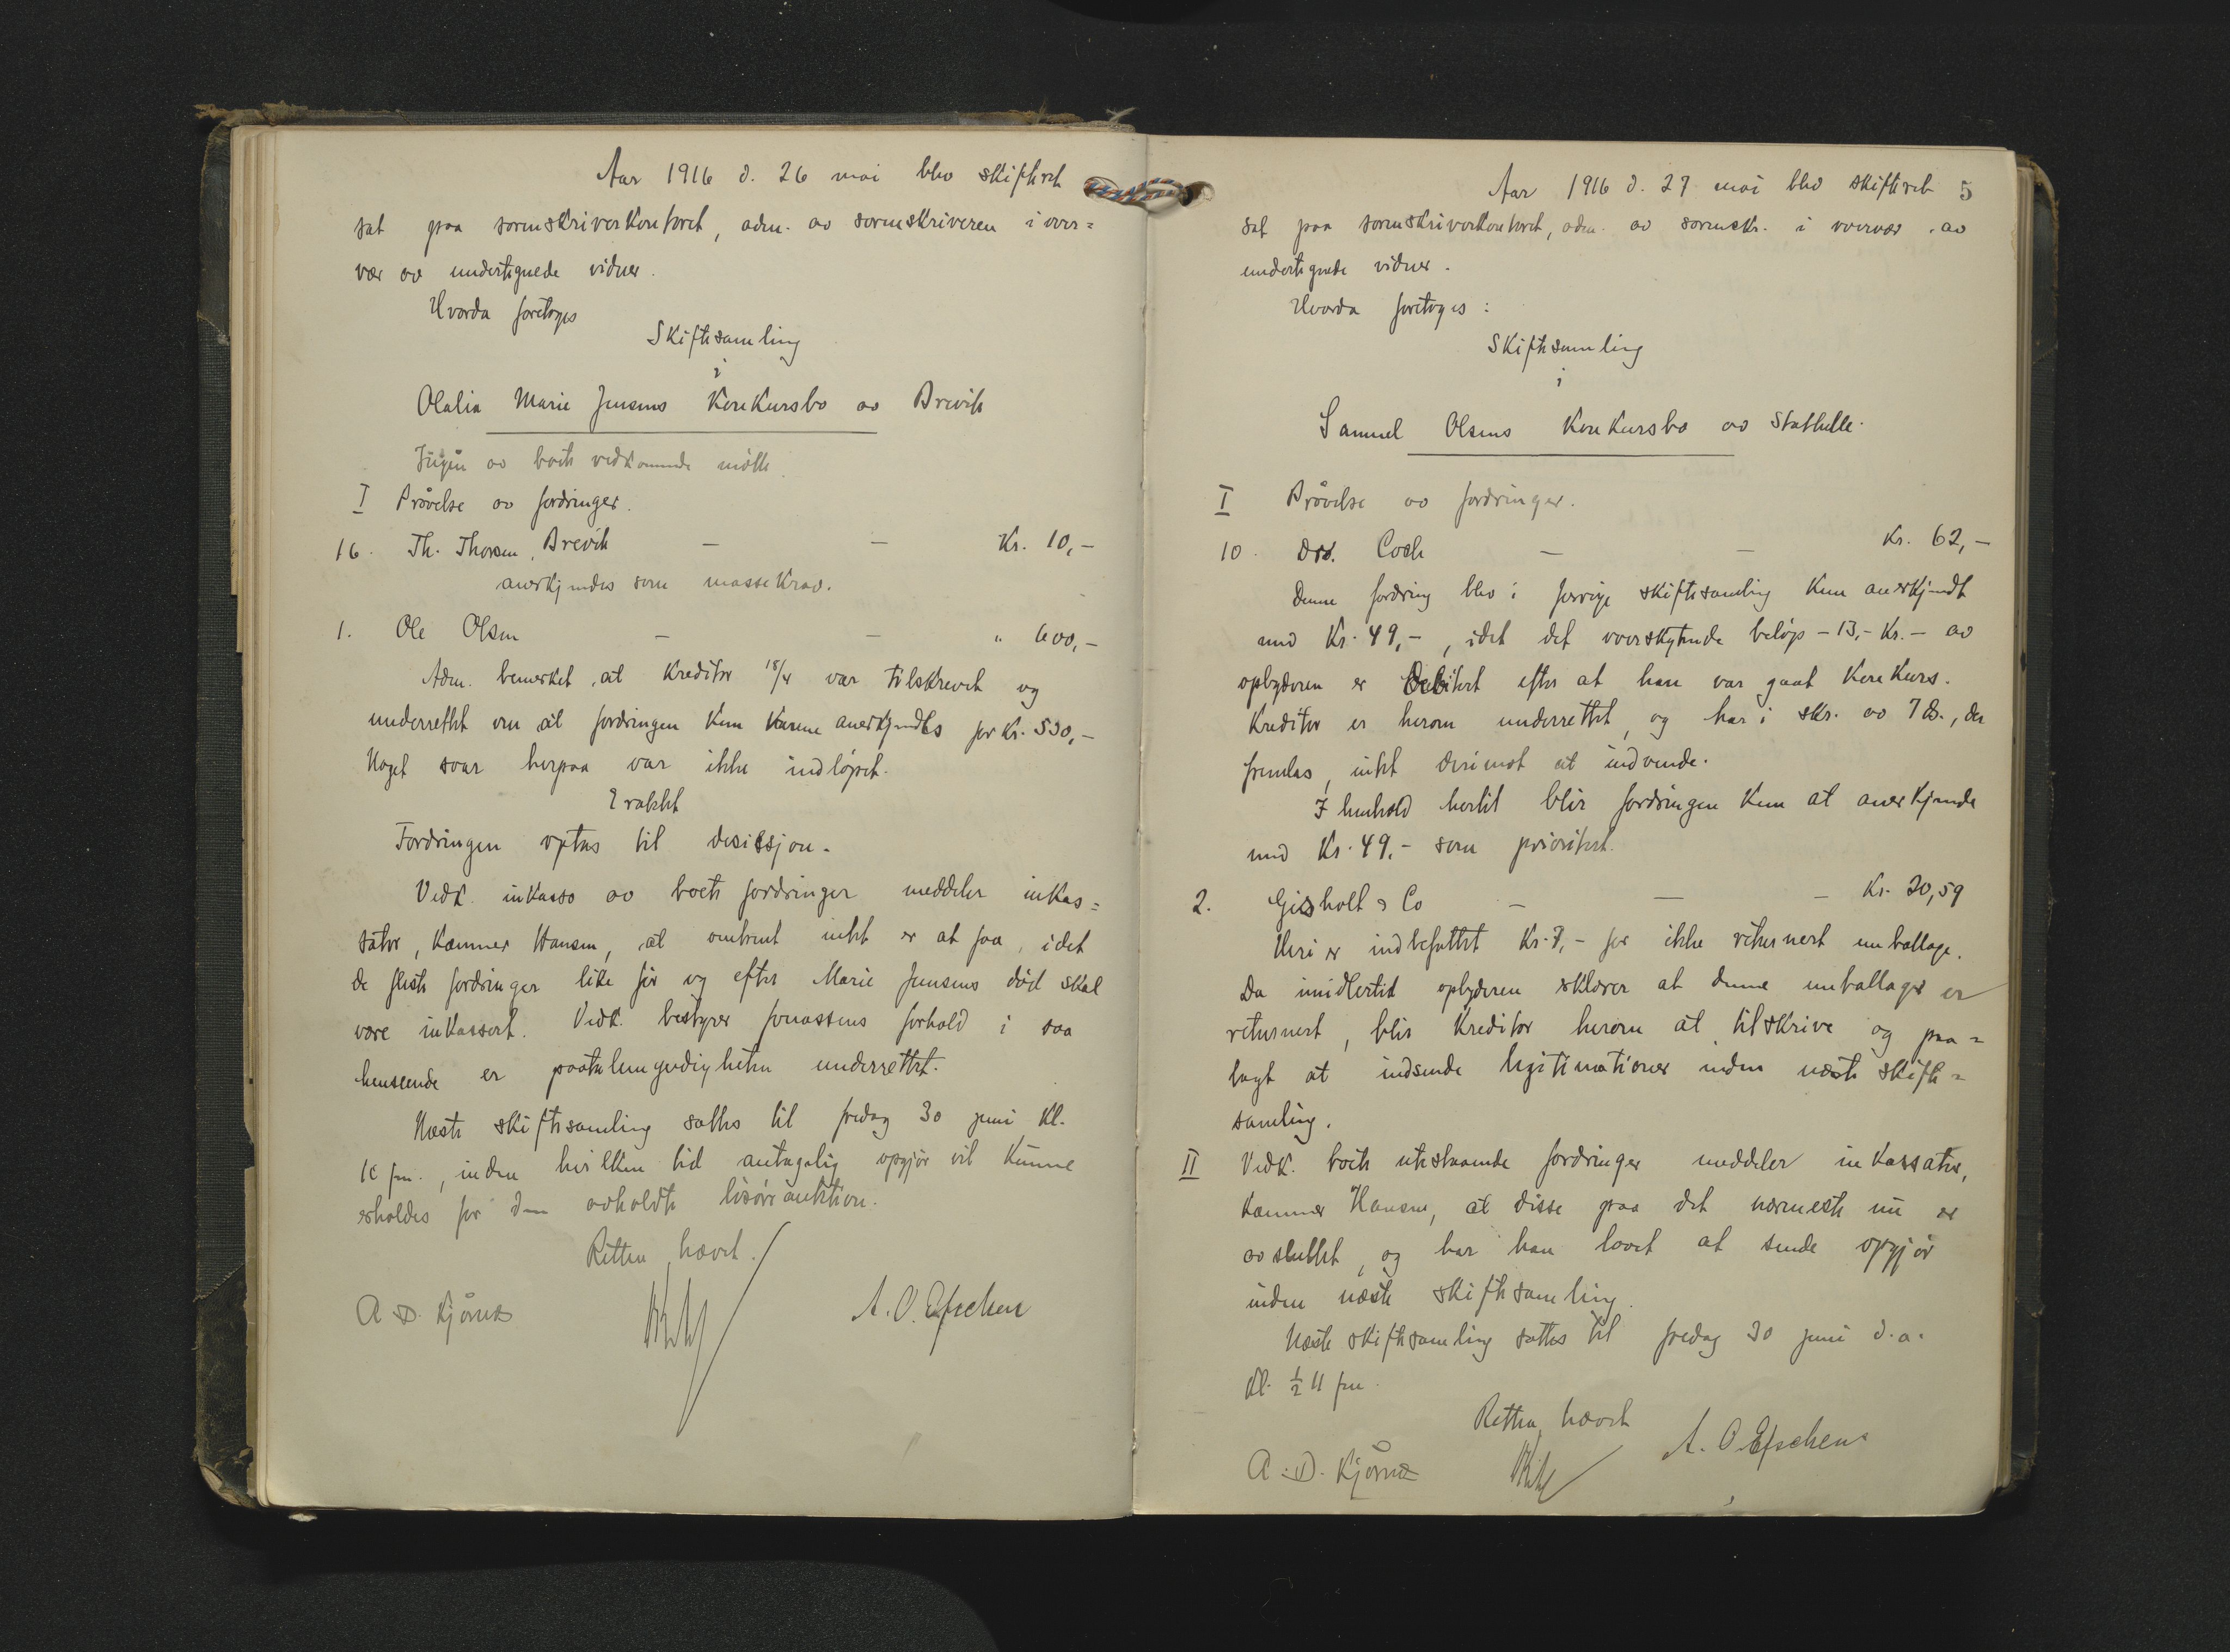 Aar 1916 d. 26 mai blev skifteret
sat paa sorenskriverkontoret, adm. av sorenskriveren i over=
vær av undertegnede vidner.
Hvorda foretoges
Skiftesamling
i
Olalia Marie Jensens Konkursbo av Brevik
Ingen av boets vedkommende møtte.
I Prøvelse av fordringer.
16. Th. Thorsen, Brevik — — Kr. 10,-
anerkjendes som massekrav.
1. Ole Olsen — — " 600,-
Adm. bemerket, at kreditor 18/4 var tilskrevet og
underrettet om at fordringen kun kunne anerkjendtes for Kr. 530,-
Noget svar herpaa var ikke indløpet.
Eraktet
Fordringen optas til desissjon.
Vedk. inkasso av boets fordringer meddeler inkas=
sator, Kæmner Hansen, at omtrent intet er at faa, idet
de fleste fordringer like før og efter Marie Jensens død skal
være inkassert. Vedk. bestyrer Jonassens forhold i saa
henseende er paatalemyndigheten underrettet.
Næste skiftesamling sattes til fredag 30 juni kl.
10 fm., inden hvilken tid antagelig opgjør vil kunne
erholdes for den avholdte løsøreauktion.
Retten hævet.
A. D. Kjørnæs A. O. Eschen
Aar 1916 d. 27 mai blev skifteret 5
sat paa sorenskriverkontoret, adm. av sorenskr. i overvær av
undertegnede vidner.
Hvorda foretoges:
Skiftesamling
i
Samuel Olsens Konkursbo av Stathelle.
I Prøvelse av fordringer.
10. Drs. Coch — — Kr. 62,-
Denne fordring blev i forrige skiftesamling kun anerkjendt
med Kr. 49,-, idet det overskytende beløp - 13,- Kr. - av
opbyderen er debitert efter at han var gaat konkurs.
Kreditor er herom underrettet, og har i skr. av 7 ds., der
fremlas, intet derimot at indvende.
I henhold hertil blir fordringen kun at anerkjende
med Kr. 49,- som prioritert.
2. Gisholt & Co — — — Kr. 20,59
Heri er indbefattet Kr. 7,- for ikke returnert emballage.
Da imidlertid opbyderen erklærer at denne emballage er
returnert, blir kreditor herom at tilskrive og paa=
lagt at indsende legitimationer inden næste skifte=
samling.
II Vedk. boets utestaaende fordringer meddeler inkassator,
kæmner Hansen, at disse paa det nærmeste nu er
avsluttet, og har han lovet at sende opgjør
inden næste skiftesamling.
Næste skiftesamling sattes til fredag 30 juni d.a.
kl. ½ 11 fm.
Retten hævet
A. D. Kjørnæs A. O. Eschen